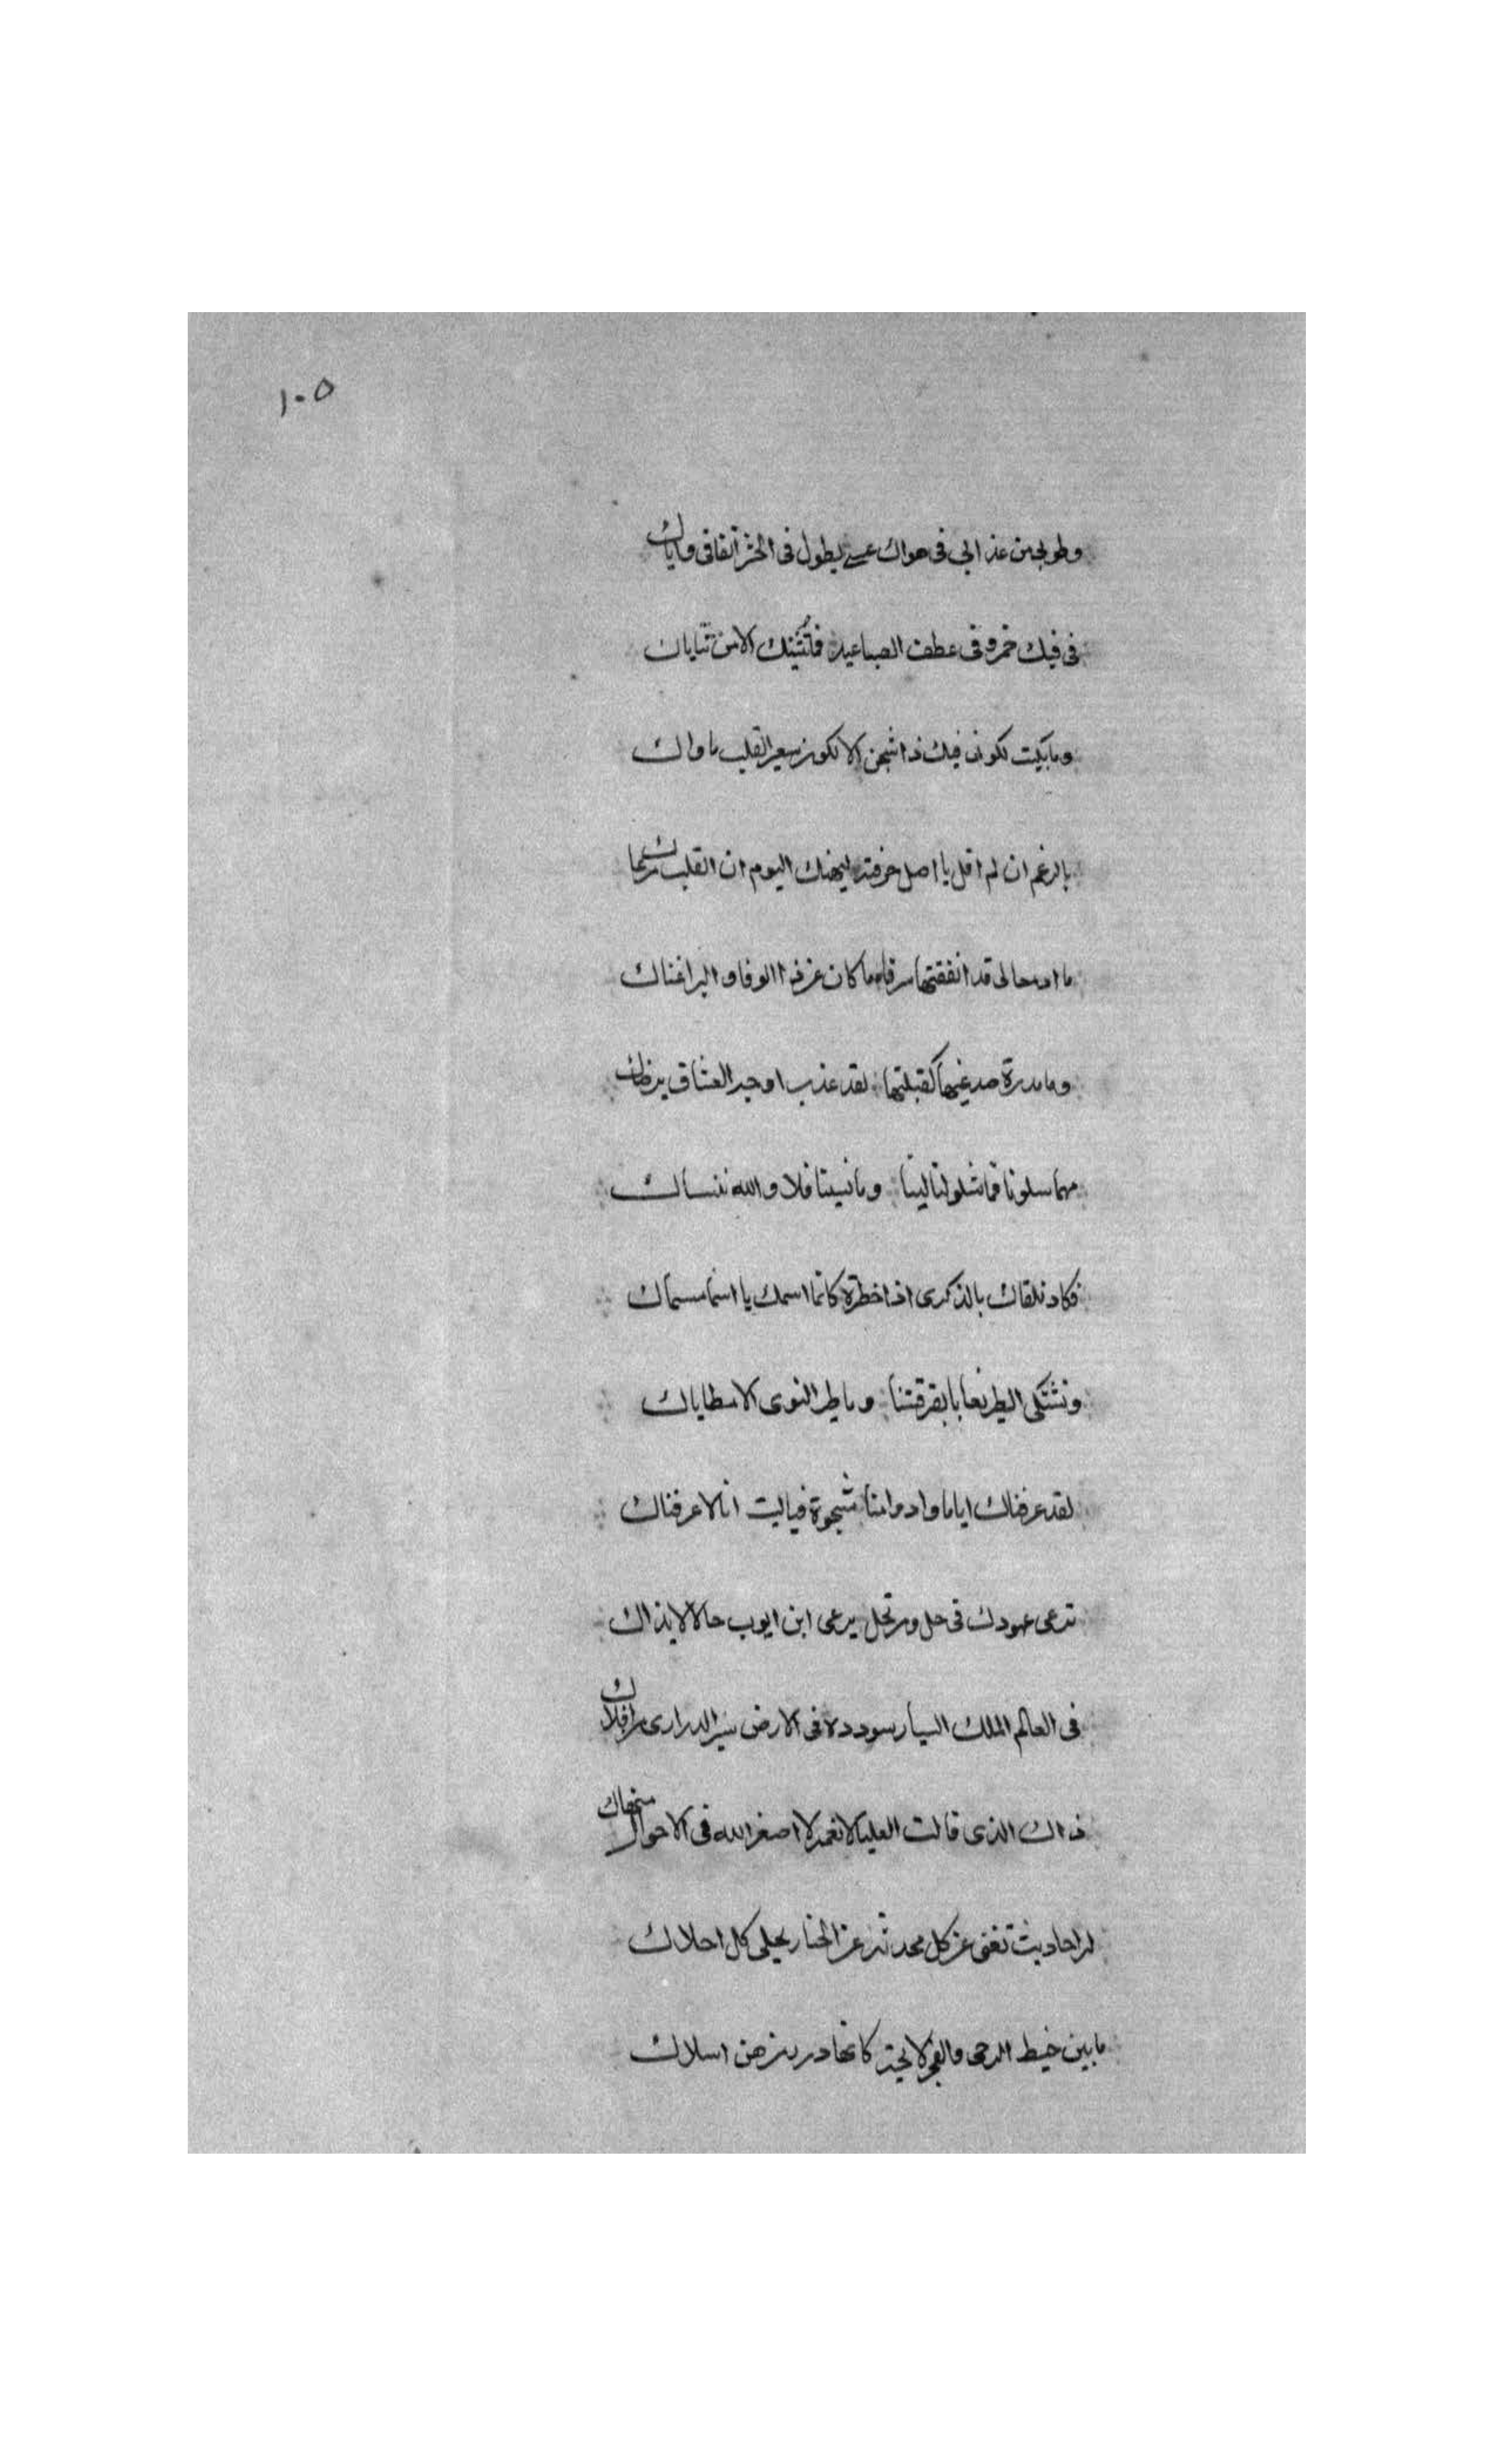 ١٠٥
وطولى من عذابي في هواك عسى يطول في الحشر اتفاقى واياك
في فيك خمر وفى عطف الصبا ميد فما تثنيك الا من ثناياك
وما بكيت لكونى فيك ذا شجن الا لكون سعير القلب ماواك
بالرغم ان لم اقل يا اصل حرقته ليهنك اليوم ان القلب مرعاك
ما ادمعا لى قد انفقتها سرفا ما كان عن ذا الوفا والبر اغناك
وما مدرة صدغيها لقبلتها لقد غذب اوجه العشاق
مهما سلونا فما نسلو ليالينا وما نسينا فلا والله ننساك
نكاد نلقاك بالذكرى اذا خطرة كانما اسمك يا اسما مسماك
ونشتكى الطير نعابا بفرقتنا وما طير النوى الا مطاياك
لقد عرفناك اياما وادمامنا شجوة فياليت انا لا عرفناك
ترعى عهودك في حل ومرتحل يرعى ابن ايوب حالا لايذاك
في العالم الملك السيار سودده في الارض سير الدرارى بافلاك
ذاك الذى قالت العليا لانعمه لا اصغر الله في الاحوال منحاك
له احاديث تغنى عن كل محدثه عن الخنا ويحلى كل احلاك
ما بين خيط الدجى والفجر لايحة كانها درر من هن اسلاك